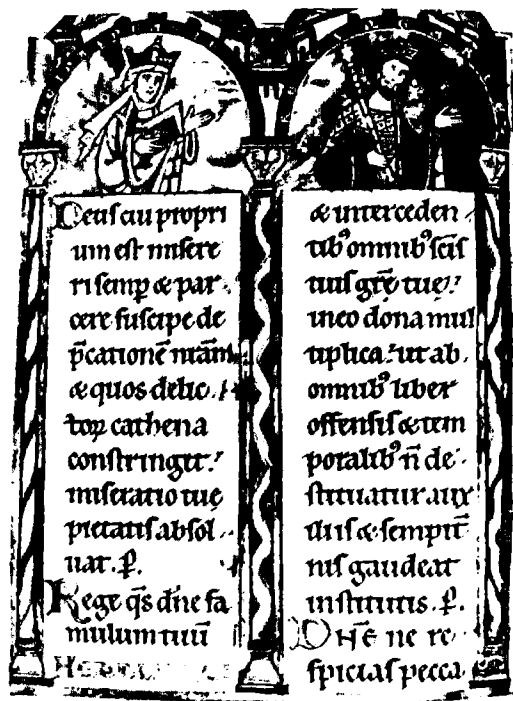 Deus cui propri
um est misere
ri semp & par
cere suscipe de
p̄cationē nr̄am
& quos delic
toꝝ cathena
constringit.
miseratio tuę
pietatis absol
uat. P̄.
Rege q̄s dn̄e fa
mulum tuū
& interceden
tib᾿ omnib᾿ sc̄is
tuis gr̄ę tuę.
in eo dona mul
tiplica. ut ab
omnib᾿ liber
offensis & tem
poralib᾿ n̄ de
stituatur aux
iliis & sempit̄
nis gaudeat
institutis. P̄.
DN̄E ne re
spicias pecca